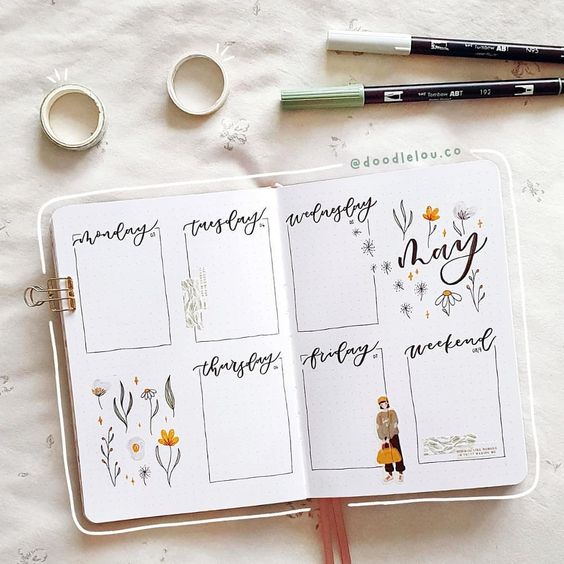 Tombow ABT N95
Tombow ABT 192
@doodlelou.co
monday
03
tuesday
04
wednesday
05
may
thursday
06
friday
07
weekend
08/9